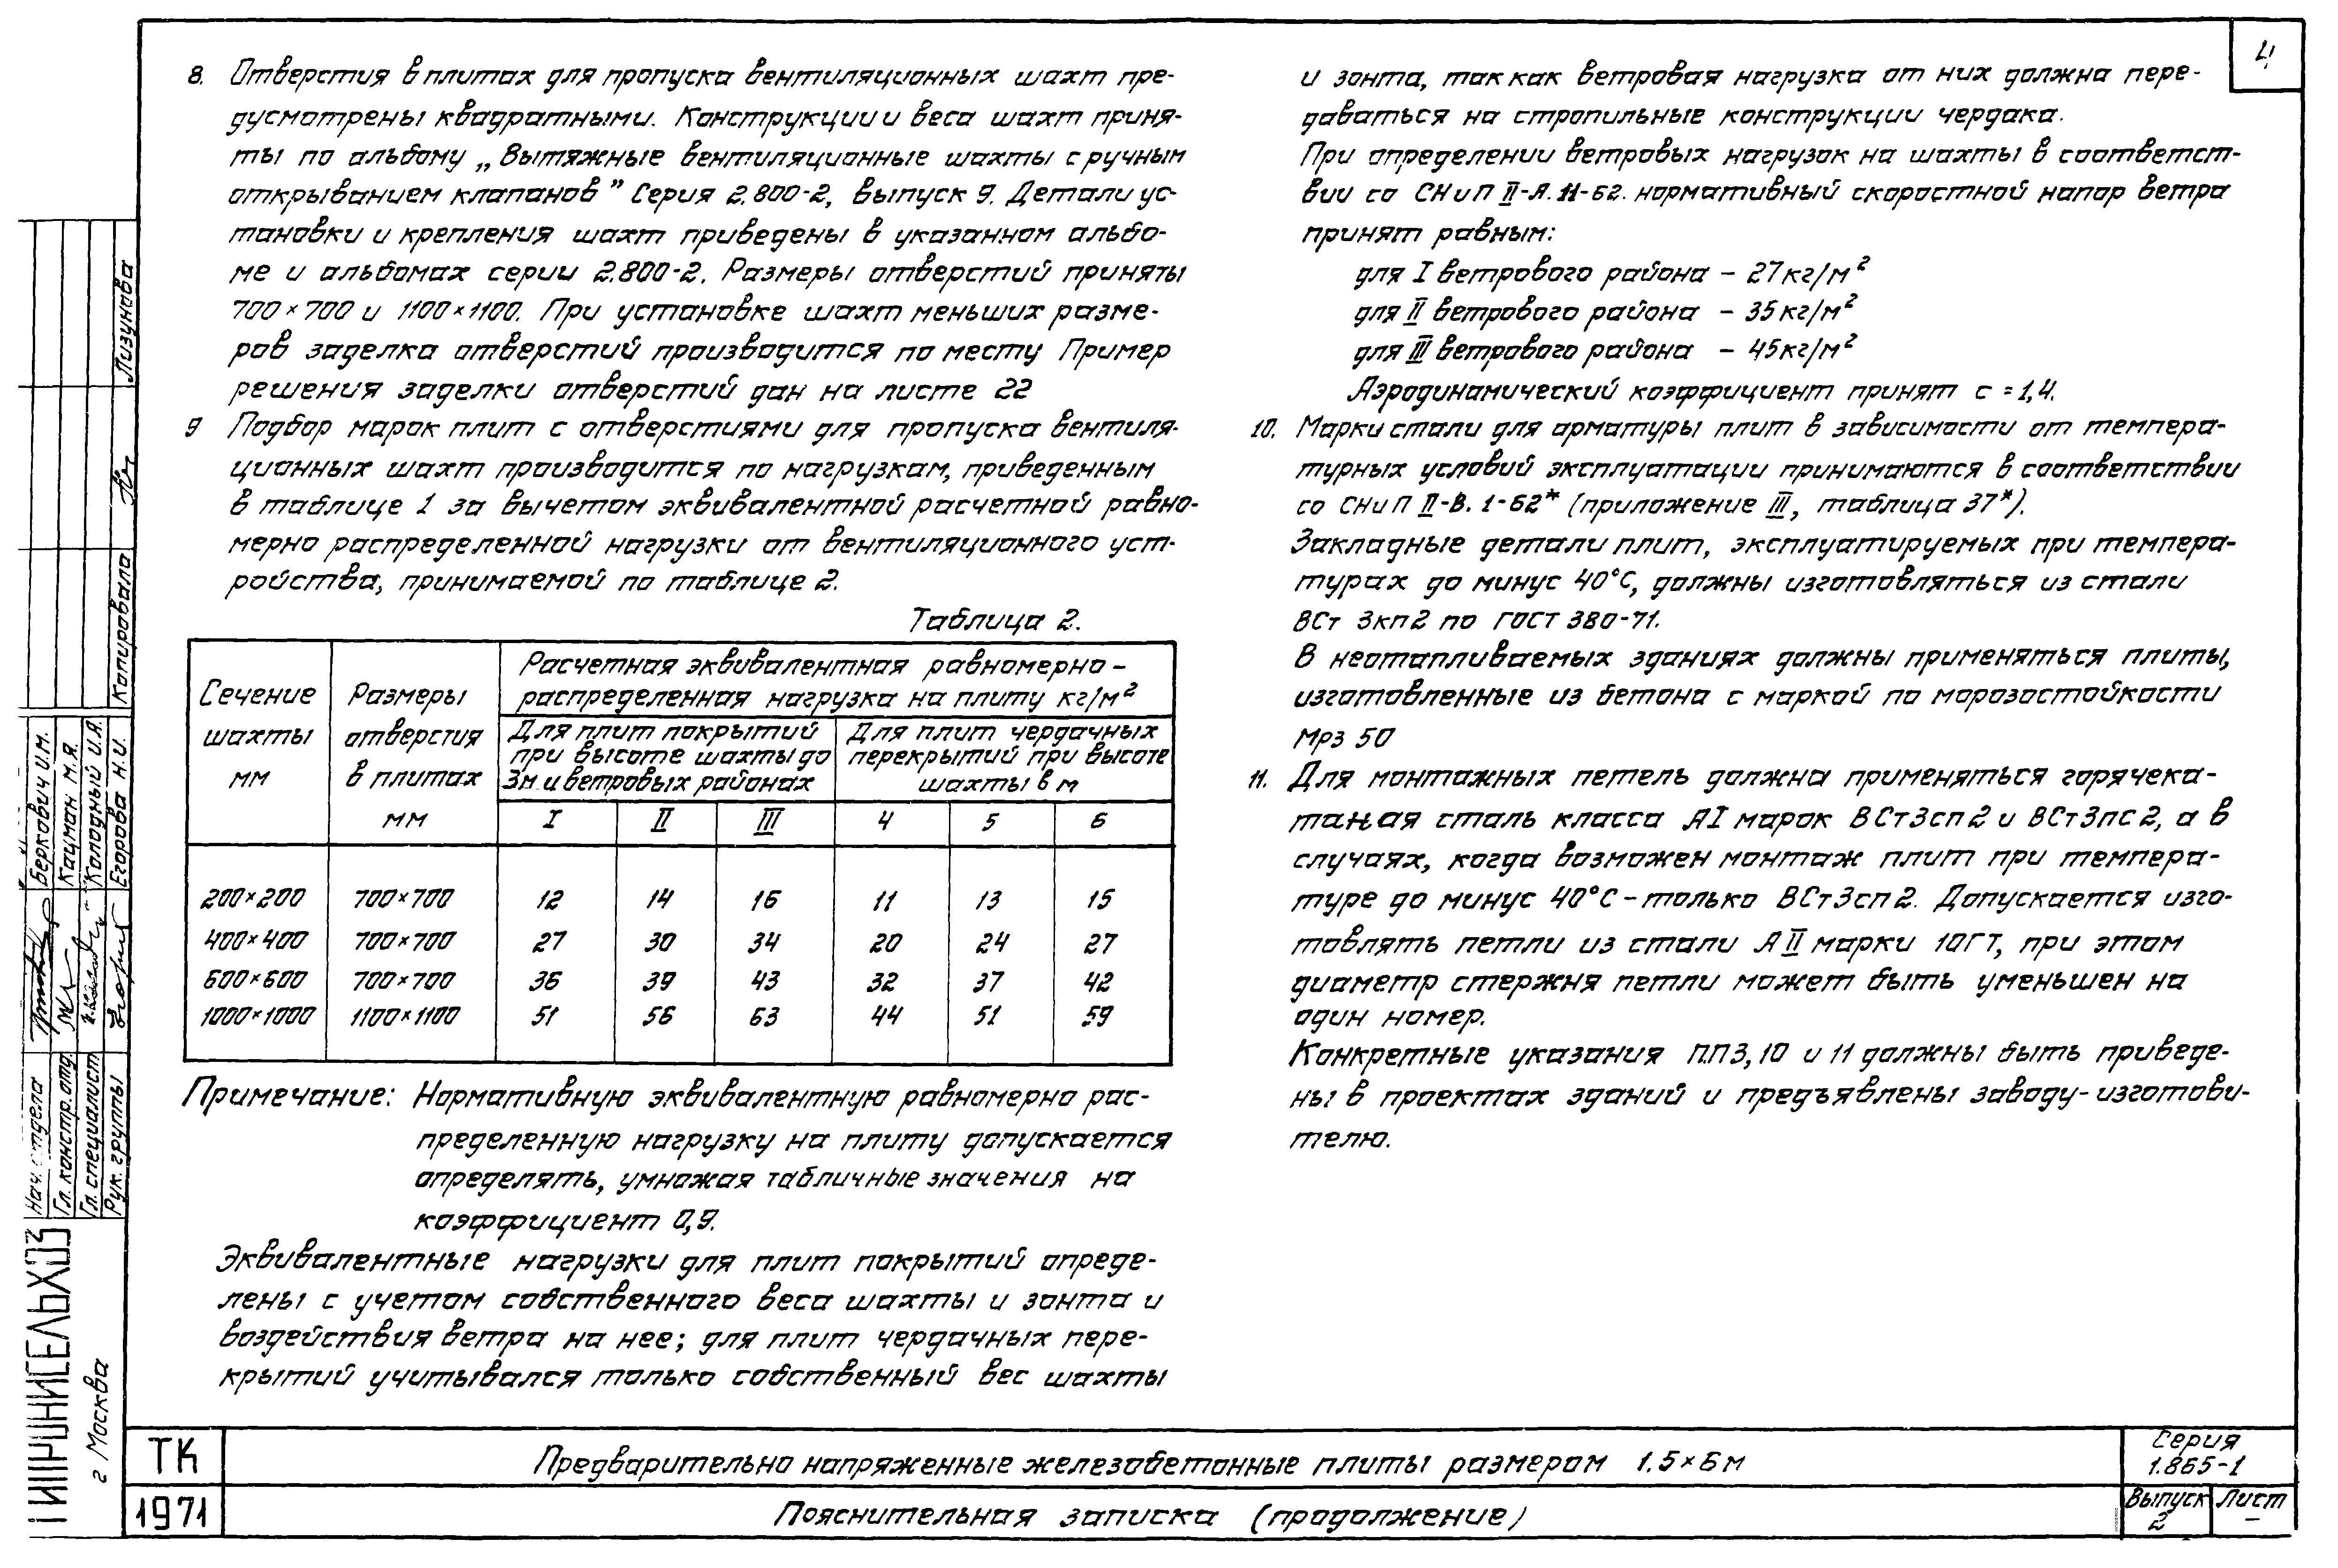 4
8. Отверстия в плитах для пропуска вентиляционных шахт пре-
дусмотрены квадратными. Конструкции и веса шахт приня-
ты по альбому „Вытяжные вентиляционные шахты с ручным
открыванием клапанов" Серия 2.800-2, выпуск 9. Детали ус-
тановки и крепления шахт приведены в указанном альбо-
ме и альбомах серии 2.800-2. Размеры отверстий приняты
700×700 и 1100×1100. При установке шахт меньших разме-
ров заделка отверстий производится по месту Пример
решения заделки отверстий дан на листе 22
9 Подбор марок плит с отверстиями для пропуска вентиля-
ционных шахт производится по нагрузкам, приведенным
в таблице 1 за вычетом эквивалентной расчетной равно-
мерно распределенной нагрузки от вентиляционного уст-
ройства, принимаемой по таблице 2.
Таблица 2.
Сечение шахты мм
Размеры отверстия в плитах мм
Расчетная эквивалентная равномерно-
распределенная нагрузка на плиту кг/м²
Для плит покрытий при высоте шахты до 3м и ветровых районах
Для плит чердачных перекрытий при высоте шахты в м
I II III 4 5 6
200×200 700×700 12 14 16 11 13 15
400×400 700×700 27 30 34 20 24 27
600×600 700×700 36 39 43 32 37 42
1000×1000 1100×1100 51 56 63 44 51 59
Примечание: Нормативную эквивалентную равномерно рас-
пределенную нагрузку на плиту допускается
определять, умножая табличные значения на
коэффициент 0,9.
Эквивалентные нагрузки для плит покрытий опреде-
лены с учетом собственного веса шахты и зонта и
воздействия ветра на нее; для плит чердачных пере-
крытий учитывался только собственный вес шахты
и зонта, так как ветровая нагрузка от них должна пере-
даваться на стропильные конструкции чердака.
При определении ветровых нагрузок на шахты в соответст-
вии со СНиП II-А.11-62. нормативный скоростной напор ветра
принят равным:
для I ветрового района – 27кг/м²
для II ветрового района – 35кг/м²
для III ветрового района – 45кг/м²
Аэродинамический коэффициент принят с = 1,4.
10. Марки стали для арматуры плит в зависимости от темпера-
турных условий эксплуатации принимаются в соответствии
со СНиП II-В. 1-62* (приложение III, таблица 37*).
Закладные детали плит, эксплуатируемых при темпера-
турах до минус 40°С, должны изготовляться из стали
ВСт 3кп2 по ГОСТ 380-71.
В неотапливаемых зданиях должны применяться плиты,
изготовленные из бетона с маркой по морозостойкости
Мрз 50
11. Для монтажных петель должна применяться горячека-
таная сталь класса АI марок ВСт3сп2 и ВСт3пс2, а в
случаях, когда возможен монтаж плит при темпера-
туре до минус 40°С – только ВСт3сп2. Допускается изго-
товлять петли из стали АII марки 10ГТ, при этом
диаметр стержня петли может быть уменьшен на
один номер.
Конкретные указания п.п 3, 10 и 11 должны быть приведе-
ны в проектах зданий и предъявлены заводу-изготови-
телю.
Нач. отдела Беркович И.М.
Гл. констр. отд. Кацман М.Я.
Гл. специалист Колодный И.Я.
Рук. группы Егорова Н.И.
Копировала Лизунова
ГИПРОНИСЕЛЬХОЗ
г Москва
ТК
1971
Предварительно напряженные железобетонные плиты размером 1.5×6м
Пояснительная записка (продолжение)
Серия
1.865-1
Выпуск 2
Лист –